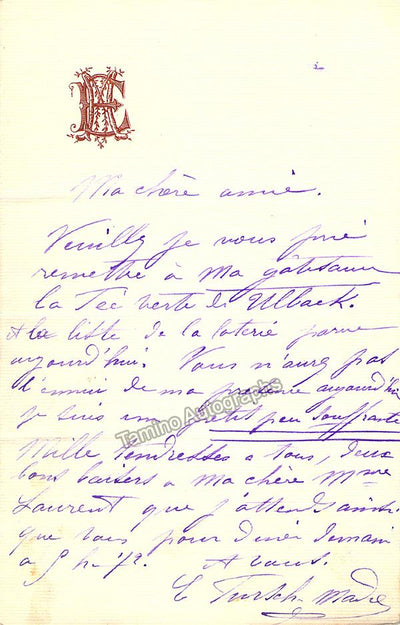 Ma chère amie.
Veuilly je vous prie
remettre à Ma
la Fée verte de Ulbach.
A la liste de la loterie parue
aujourd'hui. Vous n'aurez pas
l'ennui de ma présence aujourd'hui
je suis un petit peu souffrante
Mille tendresses a tous, deux
bons baisers a Ma chère Mme
Laurent que j'attends ainsi
que vous pour diner demain
a 5 h. 1/2. A vous.
E Fursch-Madi
Tamino Autographs